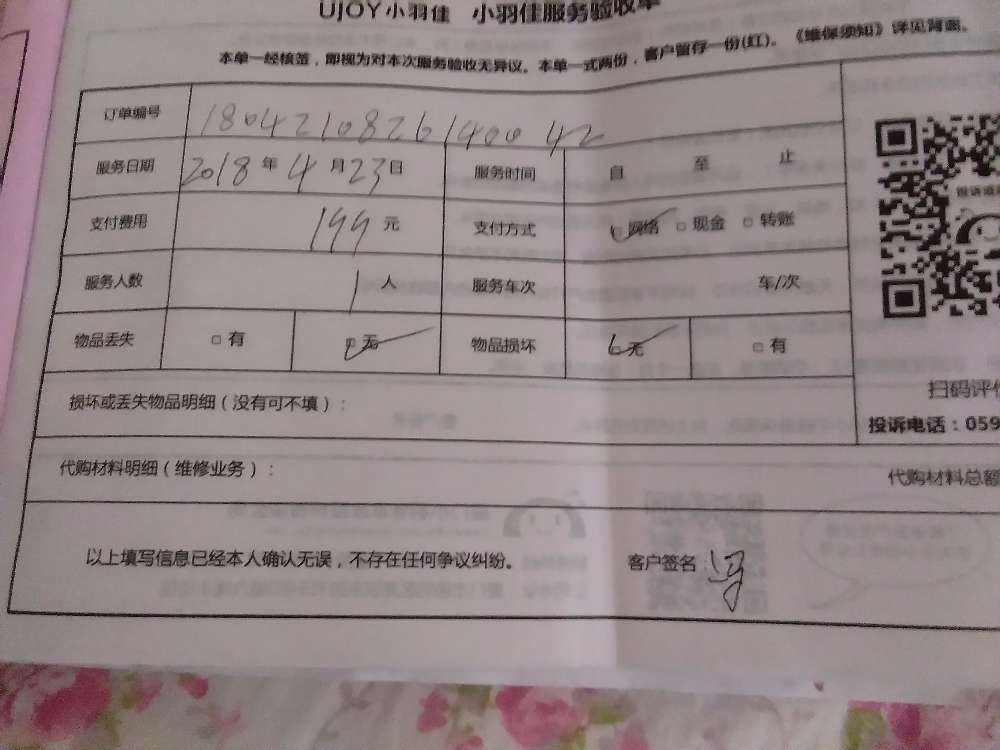 UJOY小羽佳 小羽佳服务验收单
本单一经核签，即视为对本次服务验收无异议。本单一式两份，客户留存一份(红)。《维保须知》详见背面。
订单编号 18042108261400 42
服务日期 2018 年 4 月 23 日 服务时间 自 至 止
支付费用 199 元 支付方式 □网络 □现金 □转账
服务人数 1 人 服务车次 车/次
物品丢失 □有 □无 物品损坏 □无 □有
损坏或丢失物品明细（没有可不填）：
扫码评价
投诉电话：059
代购材料明细（维修业务）： 代购材料总额
以上填写信息已经本人确认无误，不存在任何争议纠纷。 客户签名：